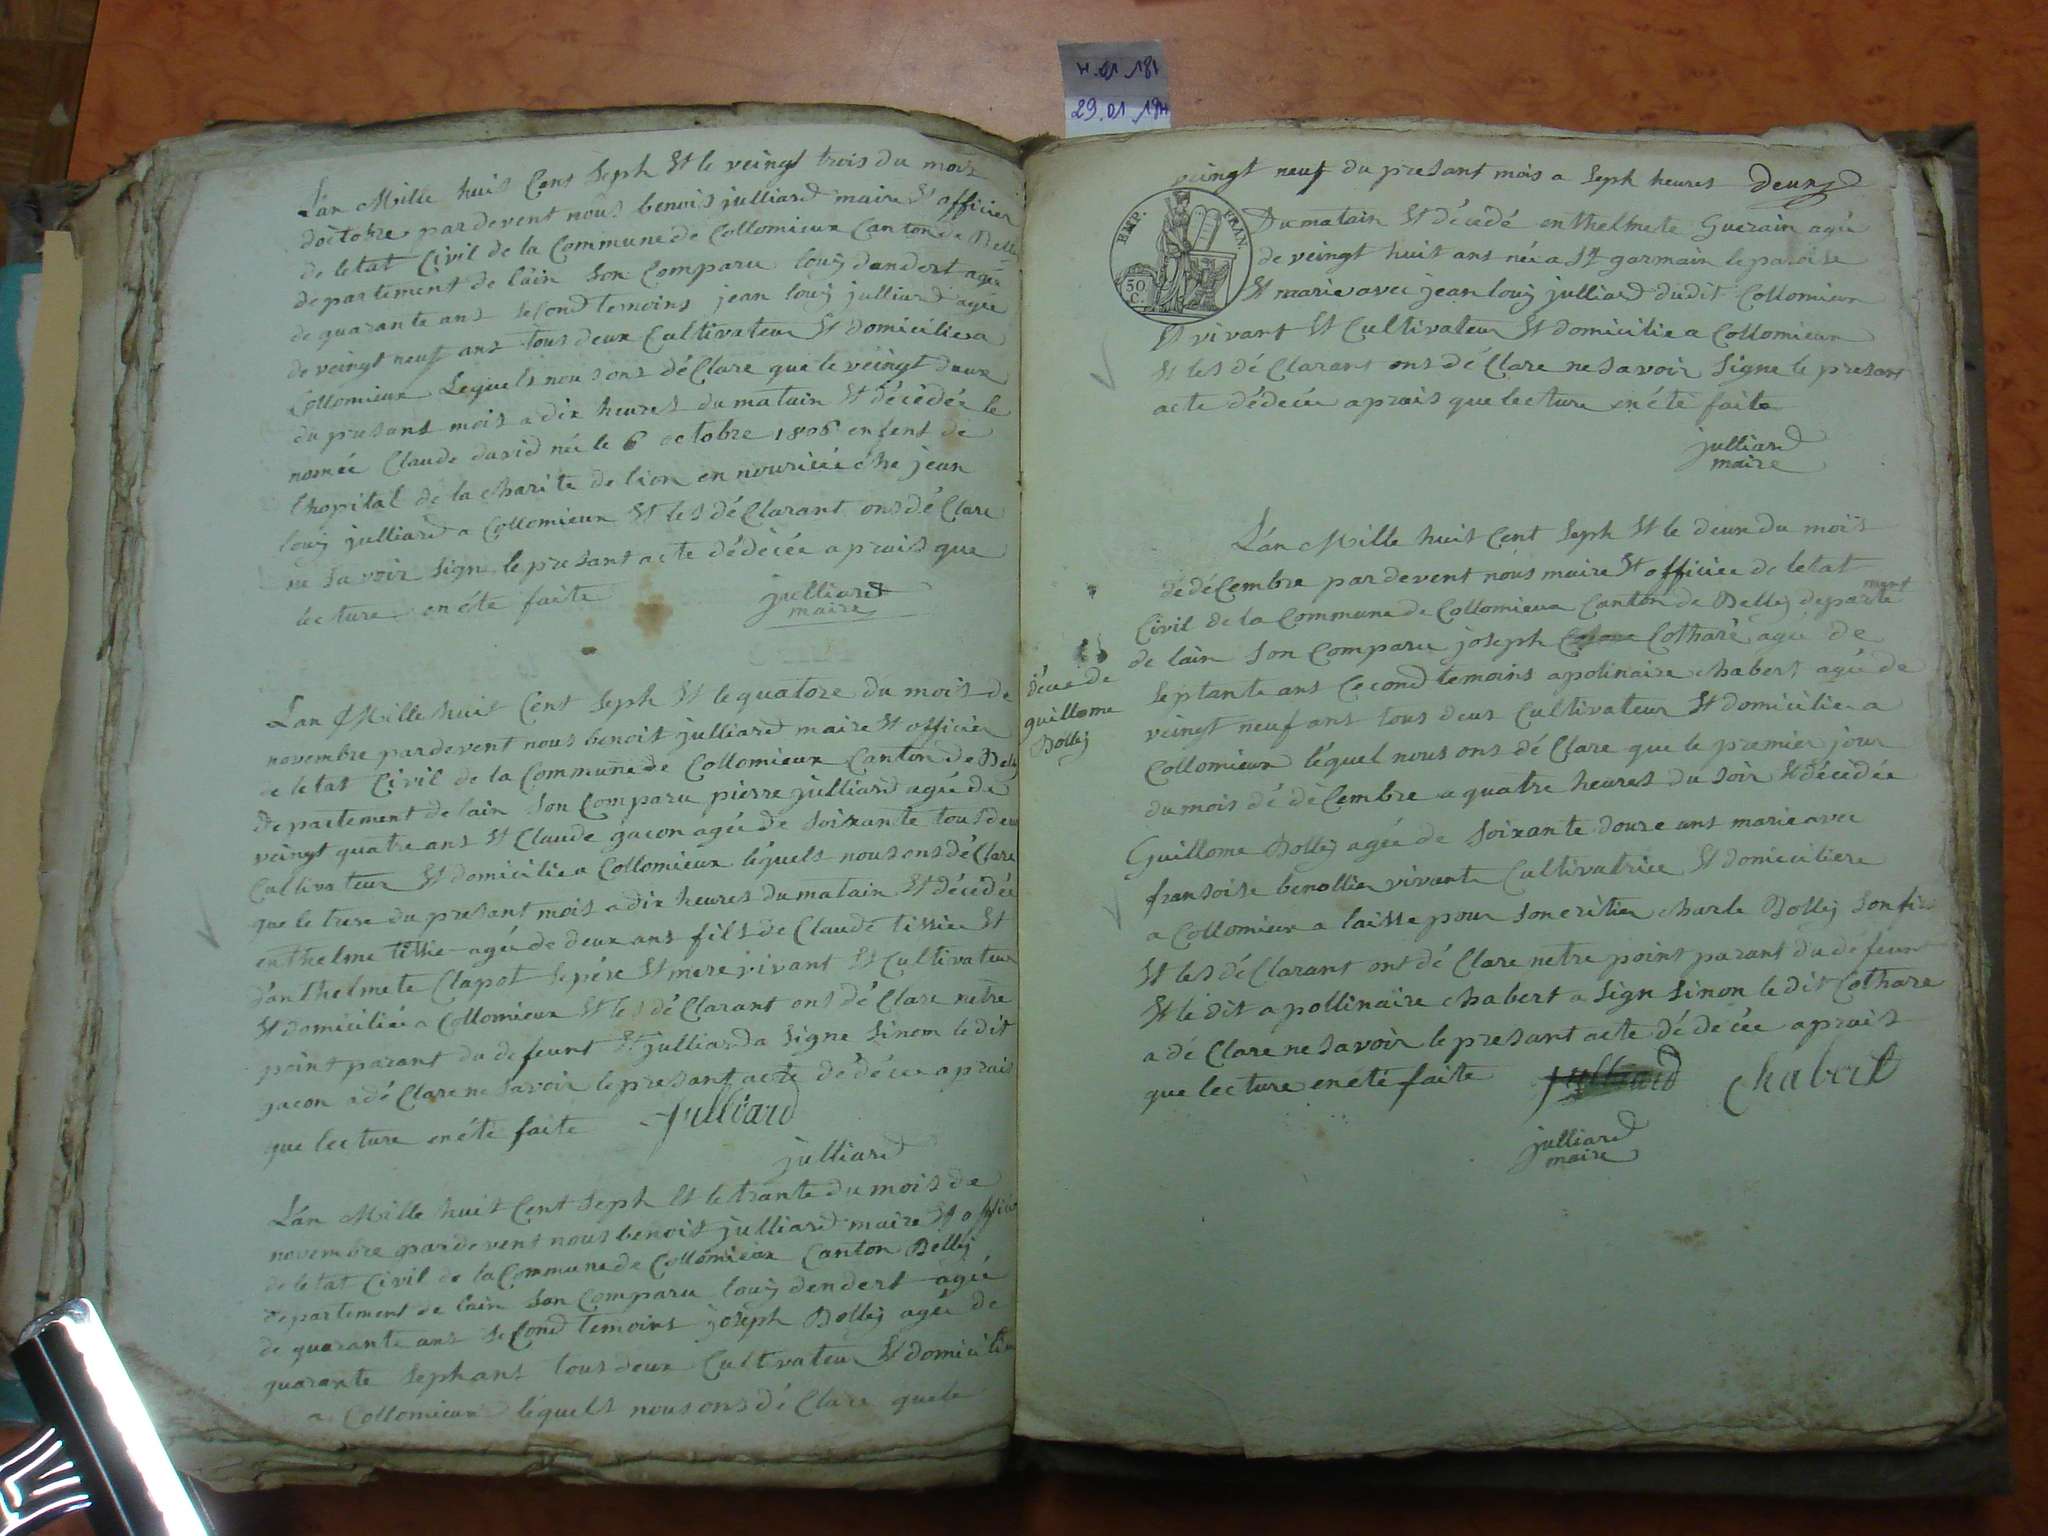 29.01.181
L'an Mille huit Cent Seph Et le veingt trois du mois
doctobre pardevent nous benois julliard maire Et officier
de letat Civil de la Commune de Collomieux Canton de Belley
departement de lain Son Comparu louij dendert agée
de quarante ans Second temoins jean louij julliard agée
de veingt neuf ans tous deux Cultivateur Et domiciliea
Collomieux Lequels nous ons déClare que le veingt deux
du presant mois a dix heures du matain Et décédée le
nomée Claude david née le 6 octobre 1806 enfent de
lhopital de la charite de lion en nouricée ché jean
louij julliard a Collomieux Et les déClarant ons déClare
ne savoir Signe le presant acte dédecée aprais que
lecture en été faite
julliard
maire
L'an Mille huit Cent Seph Et le quatore du mois de
novembre pardevent nous benoit julliard maire Et officier
de letat Civil de la Commune de Collomieux Canton de Belley
departement de lain Son Comparu pierre julliard agée de
veingt quatre ans Et Claude gacon agée de Soixante tous deux
Cultivateur Et domicilie a Collomieux léquels nous ons déClare
que le trese du presant mois a dix heures du matain Et décédée
enthelme tissie agée de deux ans fils de Claude tissier Et
d'anthelmete Clapot Sepére Et mere vivant Et Cultivateur
Et domiciliée a Collomieux Et les déClarant ons déClare netre
point parant du defeunt Et julliard a Signe Sinom le dit
gacon a déClare ne savoir le presant acte dédécée aprais
que lecture en été faite Julliard
julliard
L'an Mille huit Cent Seph Et le trante du mois de
novembre pardevent nous benoit julliard maire Et officier
de letat Civil de la Commune de Collomieux Canton Belleij
departement de lain Son Comparu louij dendert agée
de quarante ans SeCond temoins joseph Bolleij agée de
quarante Seph ans tous deux Cultivateur Et domicilie
a Collomieux léquels nous ons déClare que le
veingt neuf du presant mois a Seph heures deux
EMP. FRAN.
50 C.
Du matain Et décédé enthelmete Guerain agée
de veingt huit ans née a St germain le paroise
Et marie avec jean louij julliard dudit Collomieux
Et vivant Et Cultivateur Et domicilie a Collomieux
Et les déClarant ons déClare ne savoir Signe le presant
acte dédecée aprais que lecture en été faite
julliard
maire
L'an Mille huit Cent Seph Et le deux du mois
de déCembre pardevent nous maire Et officiee de letat
Civil de la Commune de Collomieux Canton de Belleij departe
ment
de lain Son Comparu joseph Cothare agée de
Septante ans Cecond temoins apolinaire chabert agée de
veingt neuf ans tous deus Cultivateur Et domicilie a
Collomieux léquel nous ons déClare que le premier jour
du mois dé déCembre a quatre heures du soir Et décédée
Guillome Bolleij agée de Soixante douze ans marie avec
fransoise benollier vivante Cultivatrice Et domiciliere
a Collomieux a laisse pour Son eritier charle Bolleij Son fils
Et les déClarant ont déClare netre point parant du défeunt
Et le dit apollinaire chabert a Sign Sinon le dit Cothare
a déClare ne savoir le presant acte dédecée aprais
que lecture en été faite Julliard Chabert
julliard
maire
décée de
guillome
Bolleij